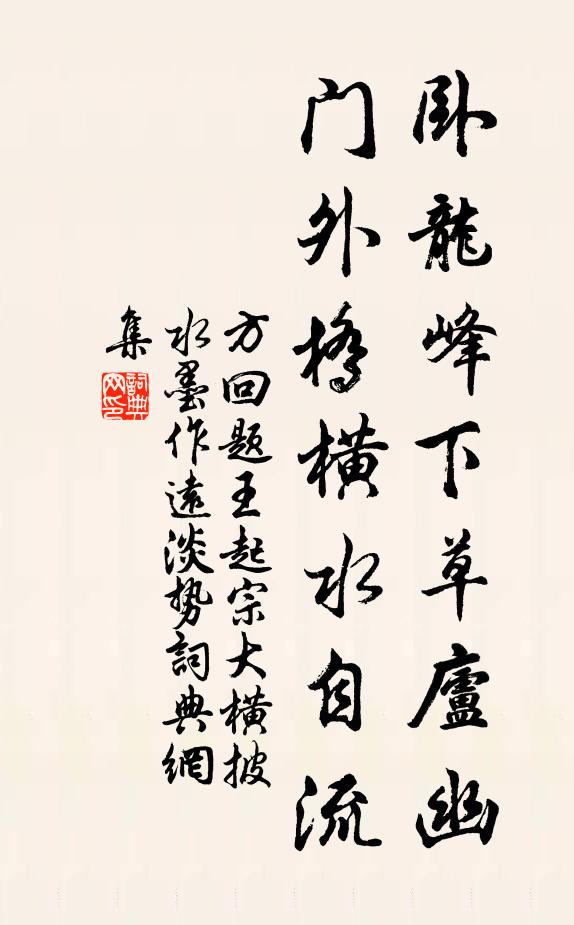 卧龍峰下草廬幽
门外橋橫水自流
方回题王起宗大橫披
水墨作遠淡势詞典網
集
詞典
网印